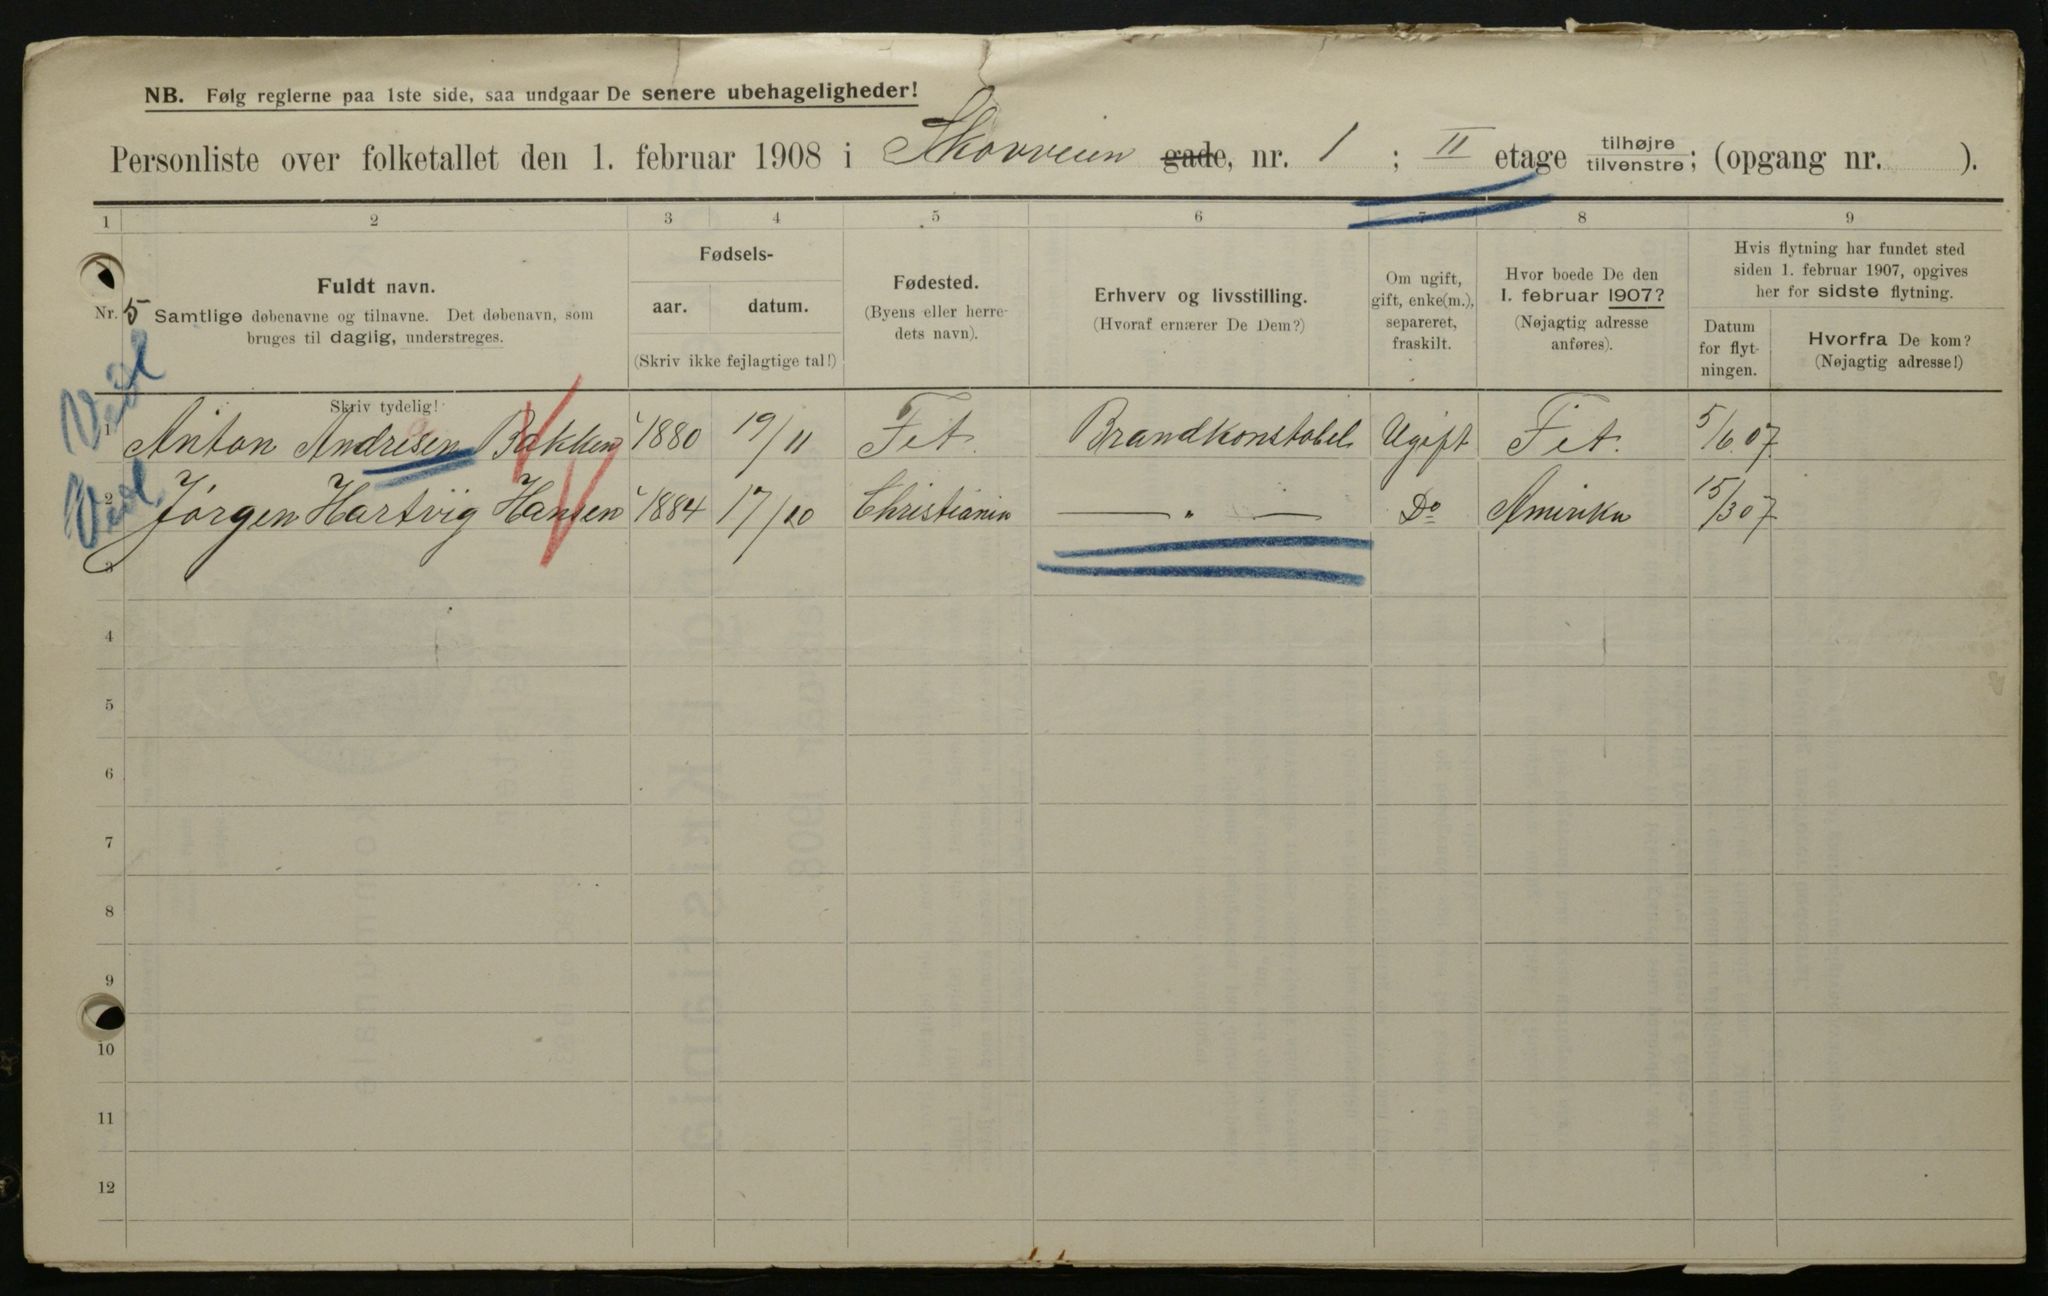 NB. Følg reglerne paa 1ste side, saa undgaar De senere ubehageligheder!
Personliste over folketallet den 1. februar 1908 i Skovveien gade, nr. 1 ; II etage tilhøjre tilvenstre; (opgang nr. ).
1 2 3 4 5 6 7 8 9
Nr. 5
Fuldt navn.
Samtlige døbenavne og tilnavne. Det døbenavn, som
bruges til daglig, understreges.
Skriv tydelig!
Fødsels-
aar. datum.
(Skriv ikke fejlagtige tal!)
Fødested.
(Byens eller herre-
dets navn).
Erhverv og livsstilling.
(Hvoraf ernærer De Dem?)
Om ugift,
gift, enke(m.),
separeret,
fraskilt.
Hvor boede De den
1. februar 1907?
(Nøjagtig adresse
anføres).
Hvis flytning har fundet sted
siden 1. februar 1907, opgives
her for sidste flytning.
Datum
for flyt-
ningen.
Hvorfra De kom?
(Nøjagtig adresse!)
1 Anton Andresen Bakken 1880 19/11 Fet Brandkonstabel Ugift Fet. 5/6 07
2 Jørgen Hartvig Hansen 1884 17/10 Christiania — " — Do Amirika 15/3 07
3
4
5
6
7
8
9
10
11
12